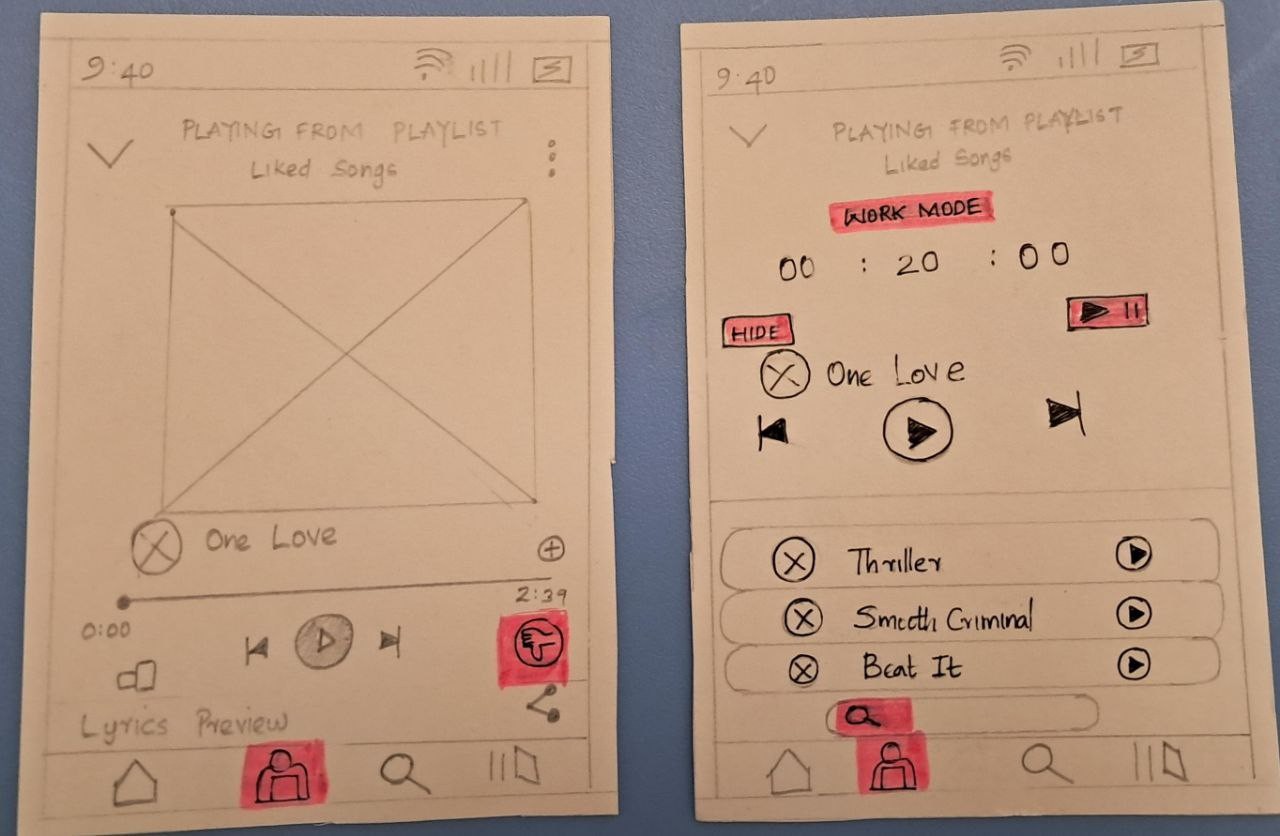 9:40
PLAYING FROM PLAYLIST
Liked Songs
One Love
2:39
0:00
Lyrics Preview
9:40
PLAYING FROM PLAYLIST
Liked Songs
WORK MODE
00 : 20 : 00
HIDE
One Love
Thriller
Smooth Criminal
Beat It